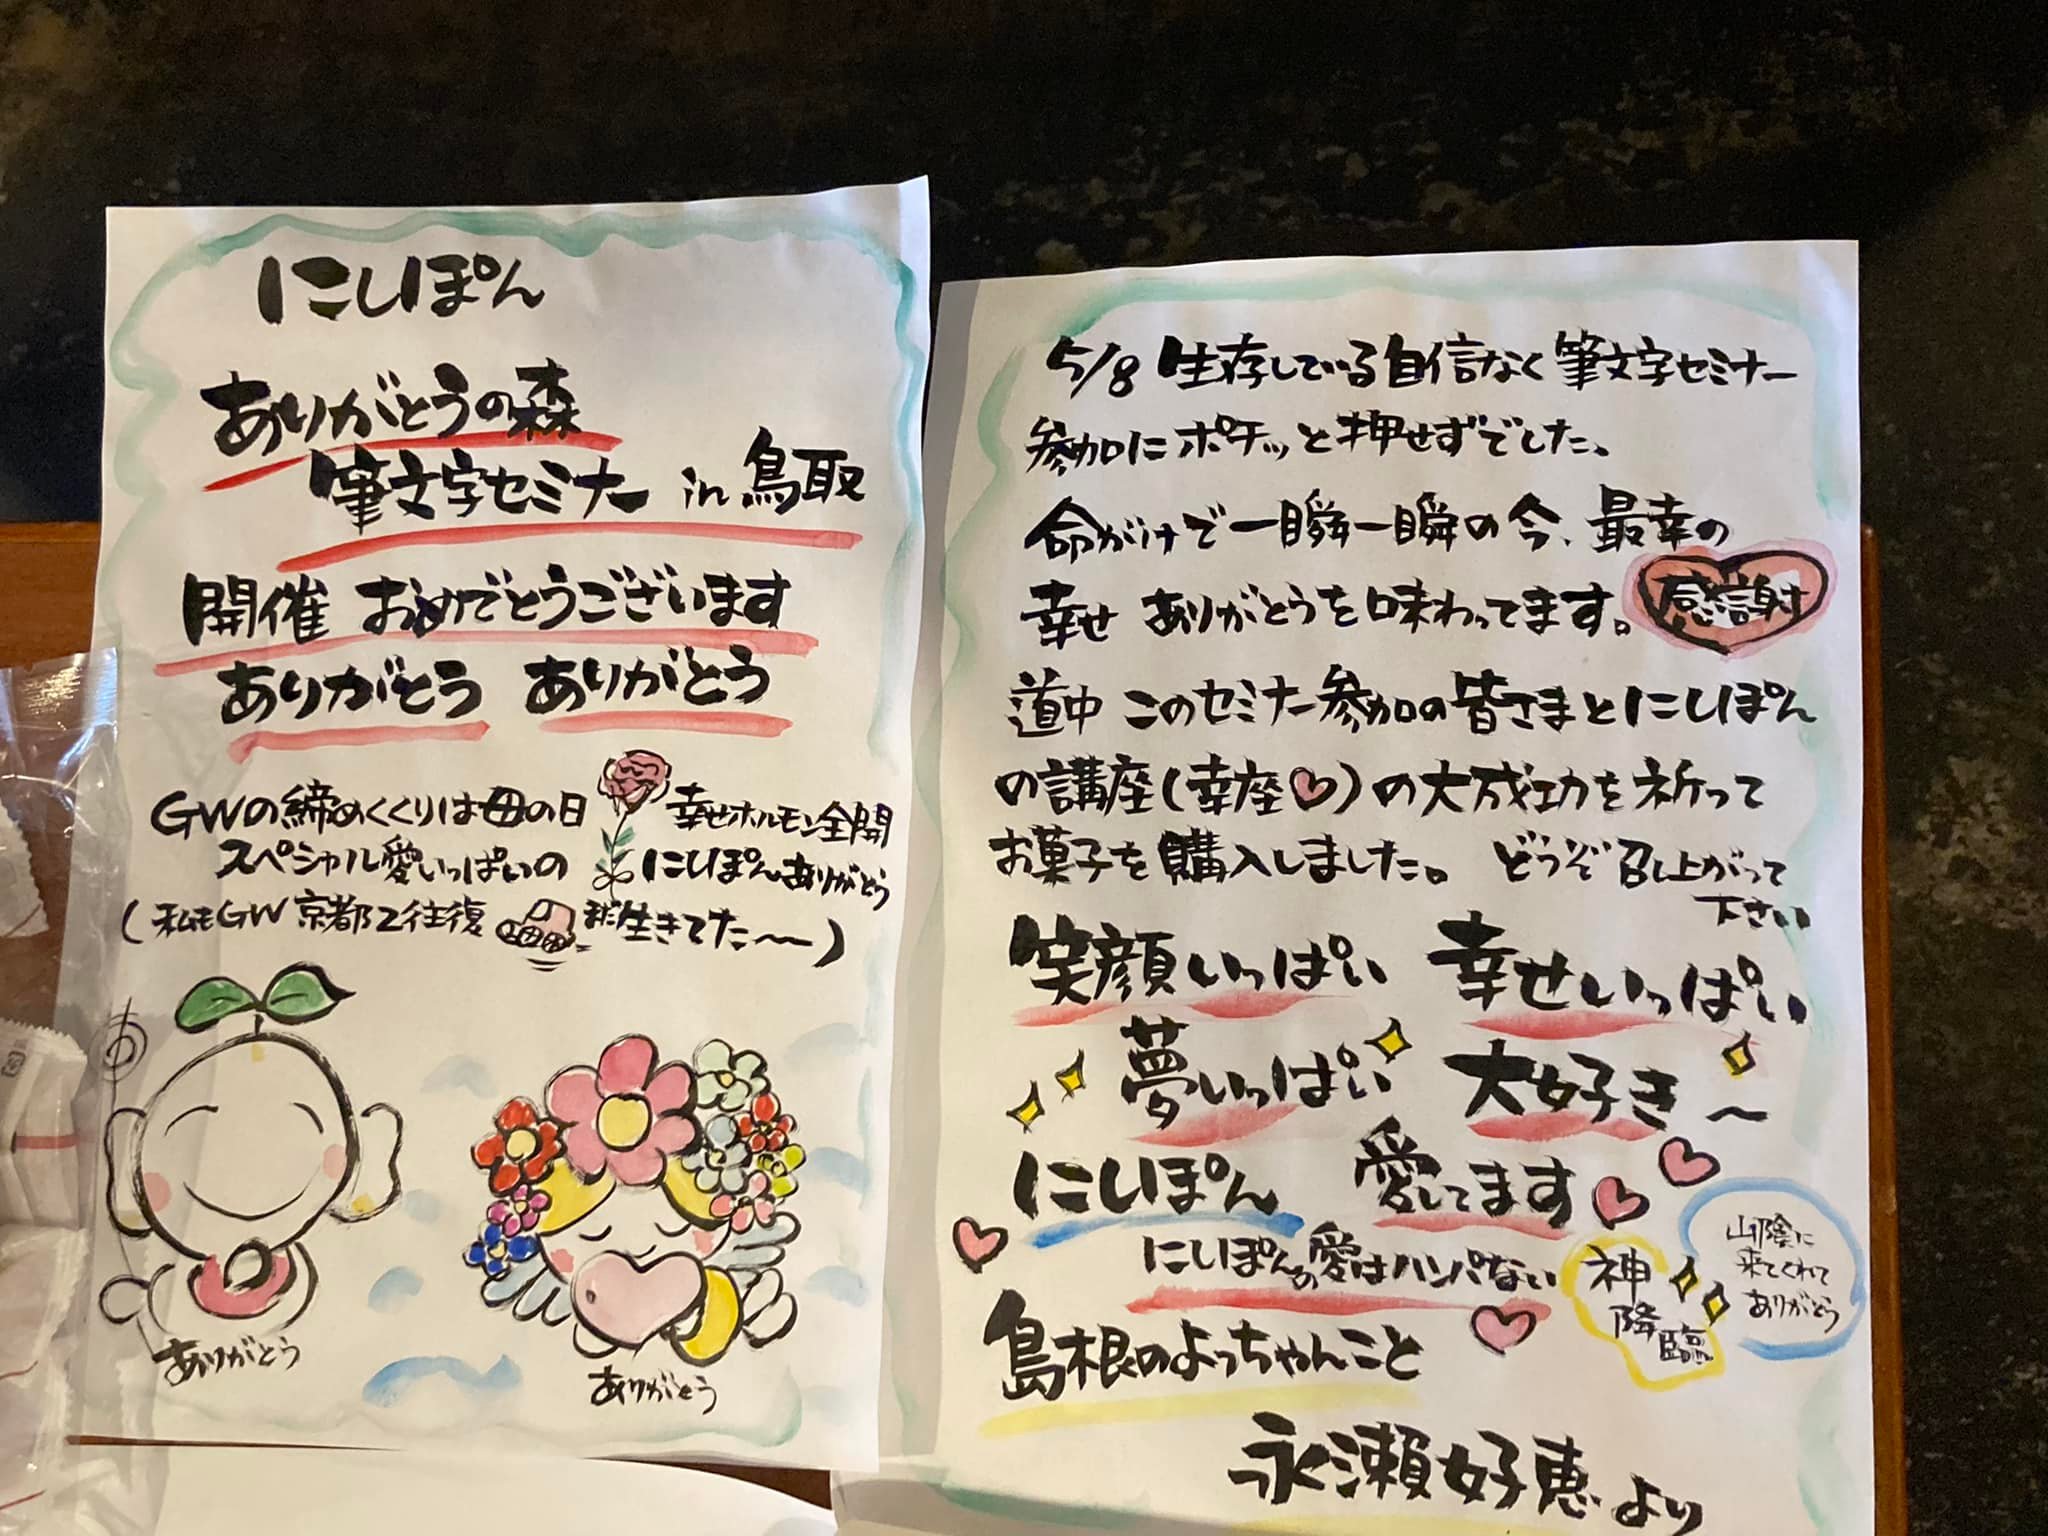 にしぽん
ありがとうの森
筆文字セミナー in 鳥取
開催 おめでとうございます
ありがとう ありがとう
GWの締めくくりは母の日
スペシャル愛いっぱいの
幸せホルモン全開
にしぽんありがとう
(私もGW 京都2往復 まだ生きてた〜)
ありがとう
ありがとう
5/8 生存している自信なく筆文字セミナー
参加にポチッと押せずでした、
命がけで一瞬一瞬の今、最幸の
幸せ ありがとうを味わってます。
感謝
道中 このセミナー参加の皆さまとにしぽん
の講座(幸座♡)の大成功を祈って
お菓子を購入しました。 どうぞ召し上がって
下さい
笑顔いっぱい 幸せいっぱい
夢いっぱい 大好き〜
にしぽん 愛してます
にしぽんの愛はハンパない
神降臨
山陰に
来てくれて
ありがとう
島根のよっちゃんこと
永瀬好恵より